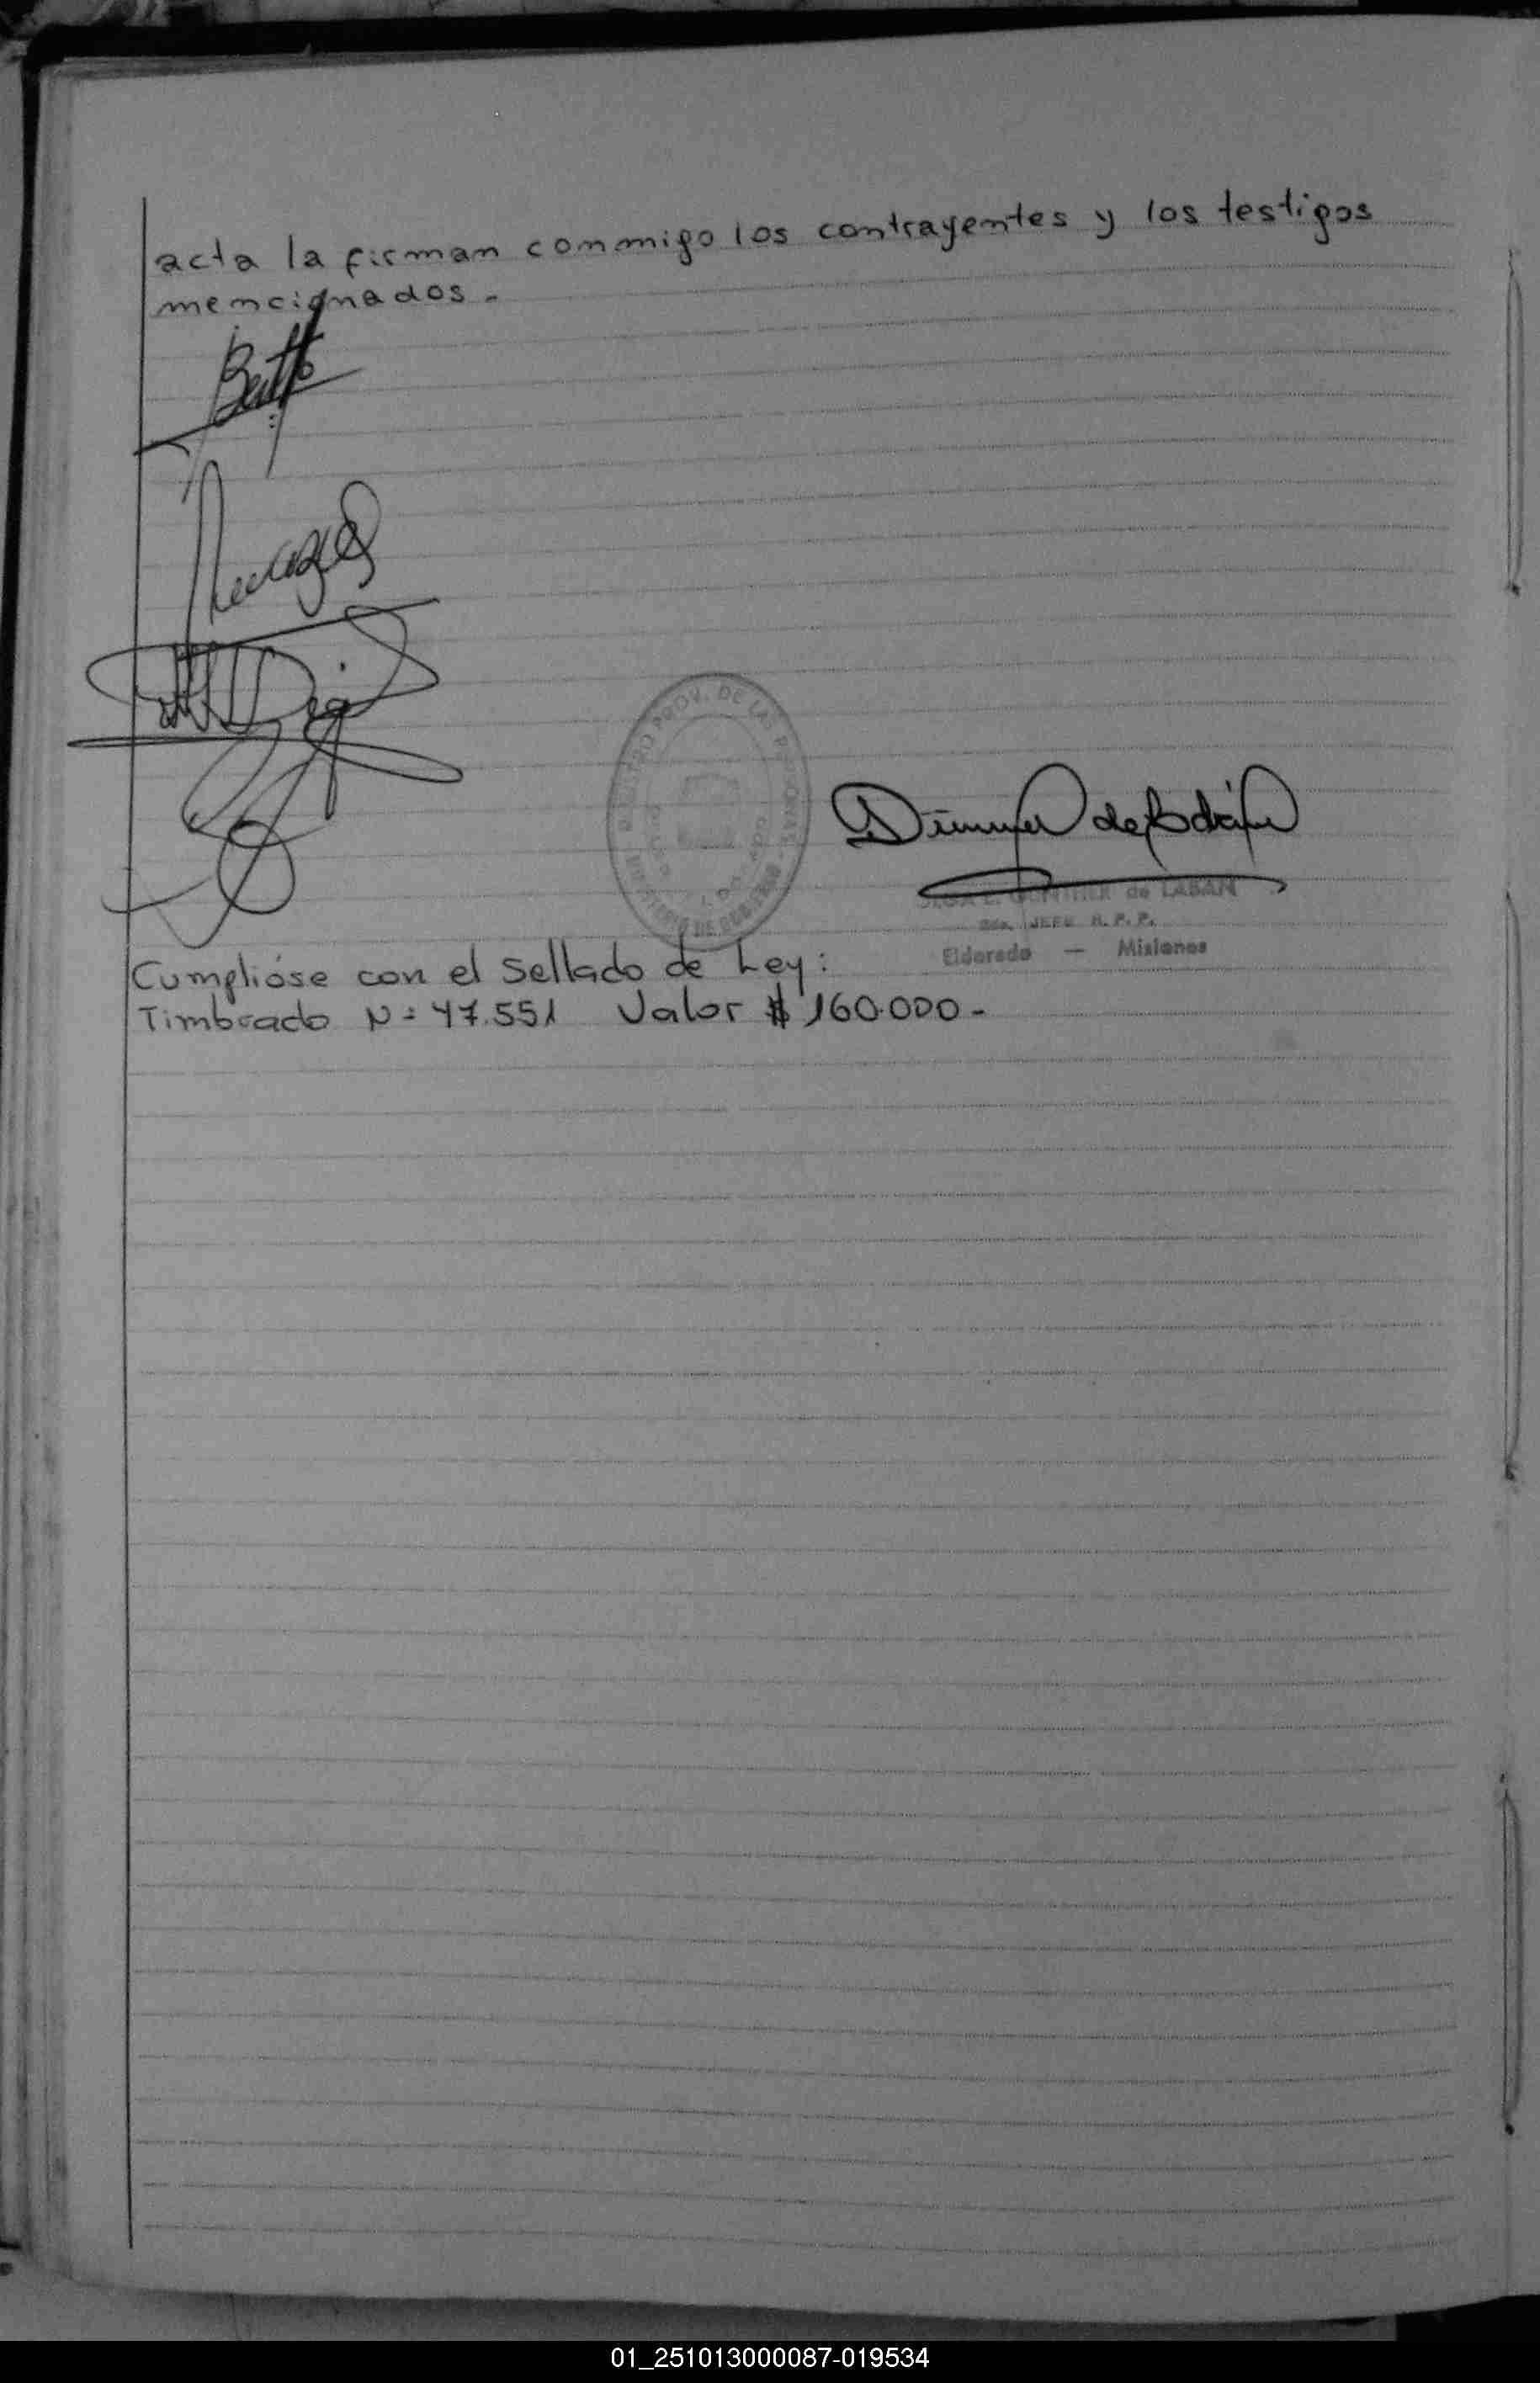 acta la firman conmigo los contrayentes y los testigos
mencionados.-
REGISTRO PROV. DE LAS PERSONAS
MINISTERIO DE GOBIERNO
GUNTHER de LABAN
JEFE R. P. P.
Eldorado — Misiones
Cumplióse con el sellado de Ley:
Timbrado N: 47.551 Valor $ 160.000-
01_251013000087-019534